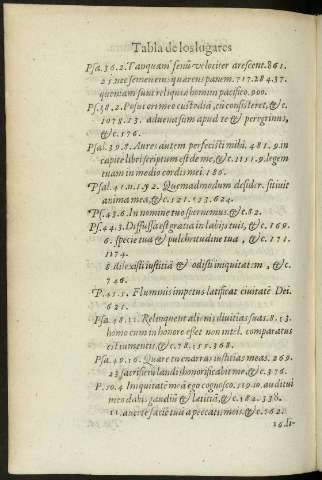 Tabla de los lugares
Psa.36.2. Tanquam fenũ velociter arescent. 861.
25. nec semen eius quærens panem. 717. 284. 37.
quoniam sunt reliquiæ homini pacifico. 900.
Ps.38.2. Posui ori meo custodiã, cũ consisteret, &c.
1078. 13. aduena sum apud te & peregrinus,
&c. 176.
Psal.39.8. Aures autem perfecisti mihi. 481. 9. in
capite libri scriptum est de me, &c. 2151. 9. legem
tuam in medio cordis mei. 186.
Psal.41.n.1.92. Quemadmodum desider. sitiuit
anima mea, &c. 121. 123. 624.
Ps.43.6. In nomine tuo spernemus, &c. 82.
Ps.44.3. Diffusa est gratia in labijs tuis, &c. 169.
6. specie tua & pulchritudine tua, &c. 171.
1174.
8 dilexisti iustitiã & odisti iniquitatem, &c.
746.
P.45.5. Fluminis impetus lætificat ciuitatẽ Dei.
621.
Psa.48.11. Relinquent alienis diuitias suas. 8. 13.
homo cum in honore esset non intel. comparatus
est iumentis, &c. 78. 155. 368.
Psa.49.16. Quare tu enarras iustitias meas. 269.
23 sacrificiũ laudis honorificabit me, &c. 376.
P.50.4 Iniquitatẽ meã ego cognosco. 519. 10. auditui
meo dabis gaudiũ & lætitiã, &c. 184. 338.
11. auerte faciẽ tuã a peccatis meis, &c. 762.
16. li-